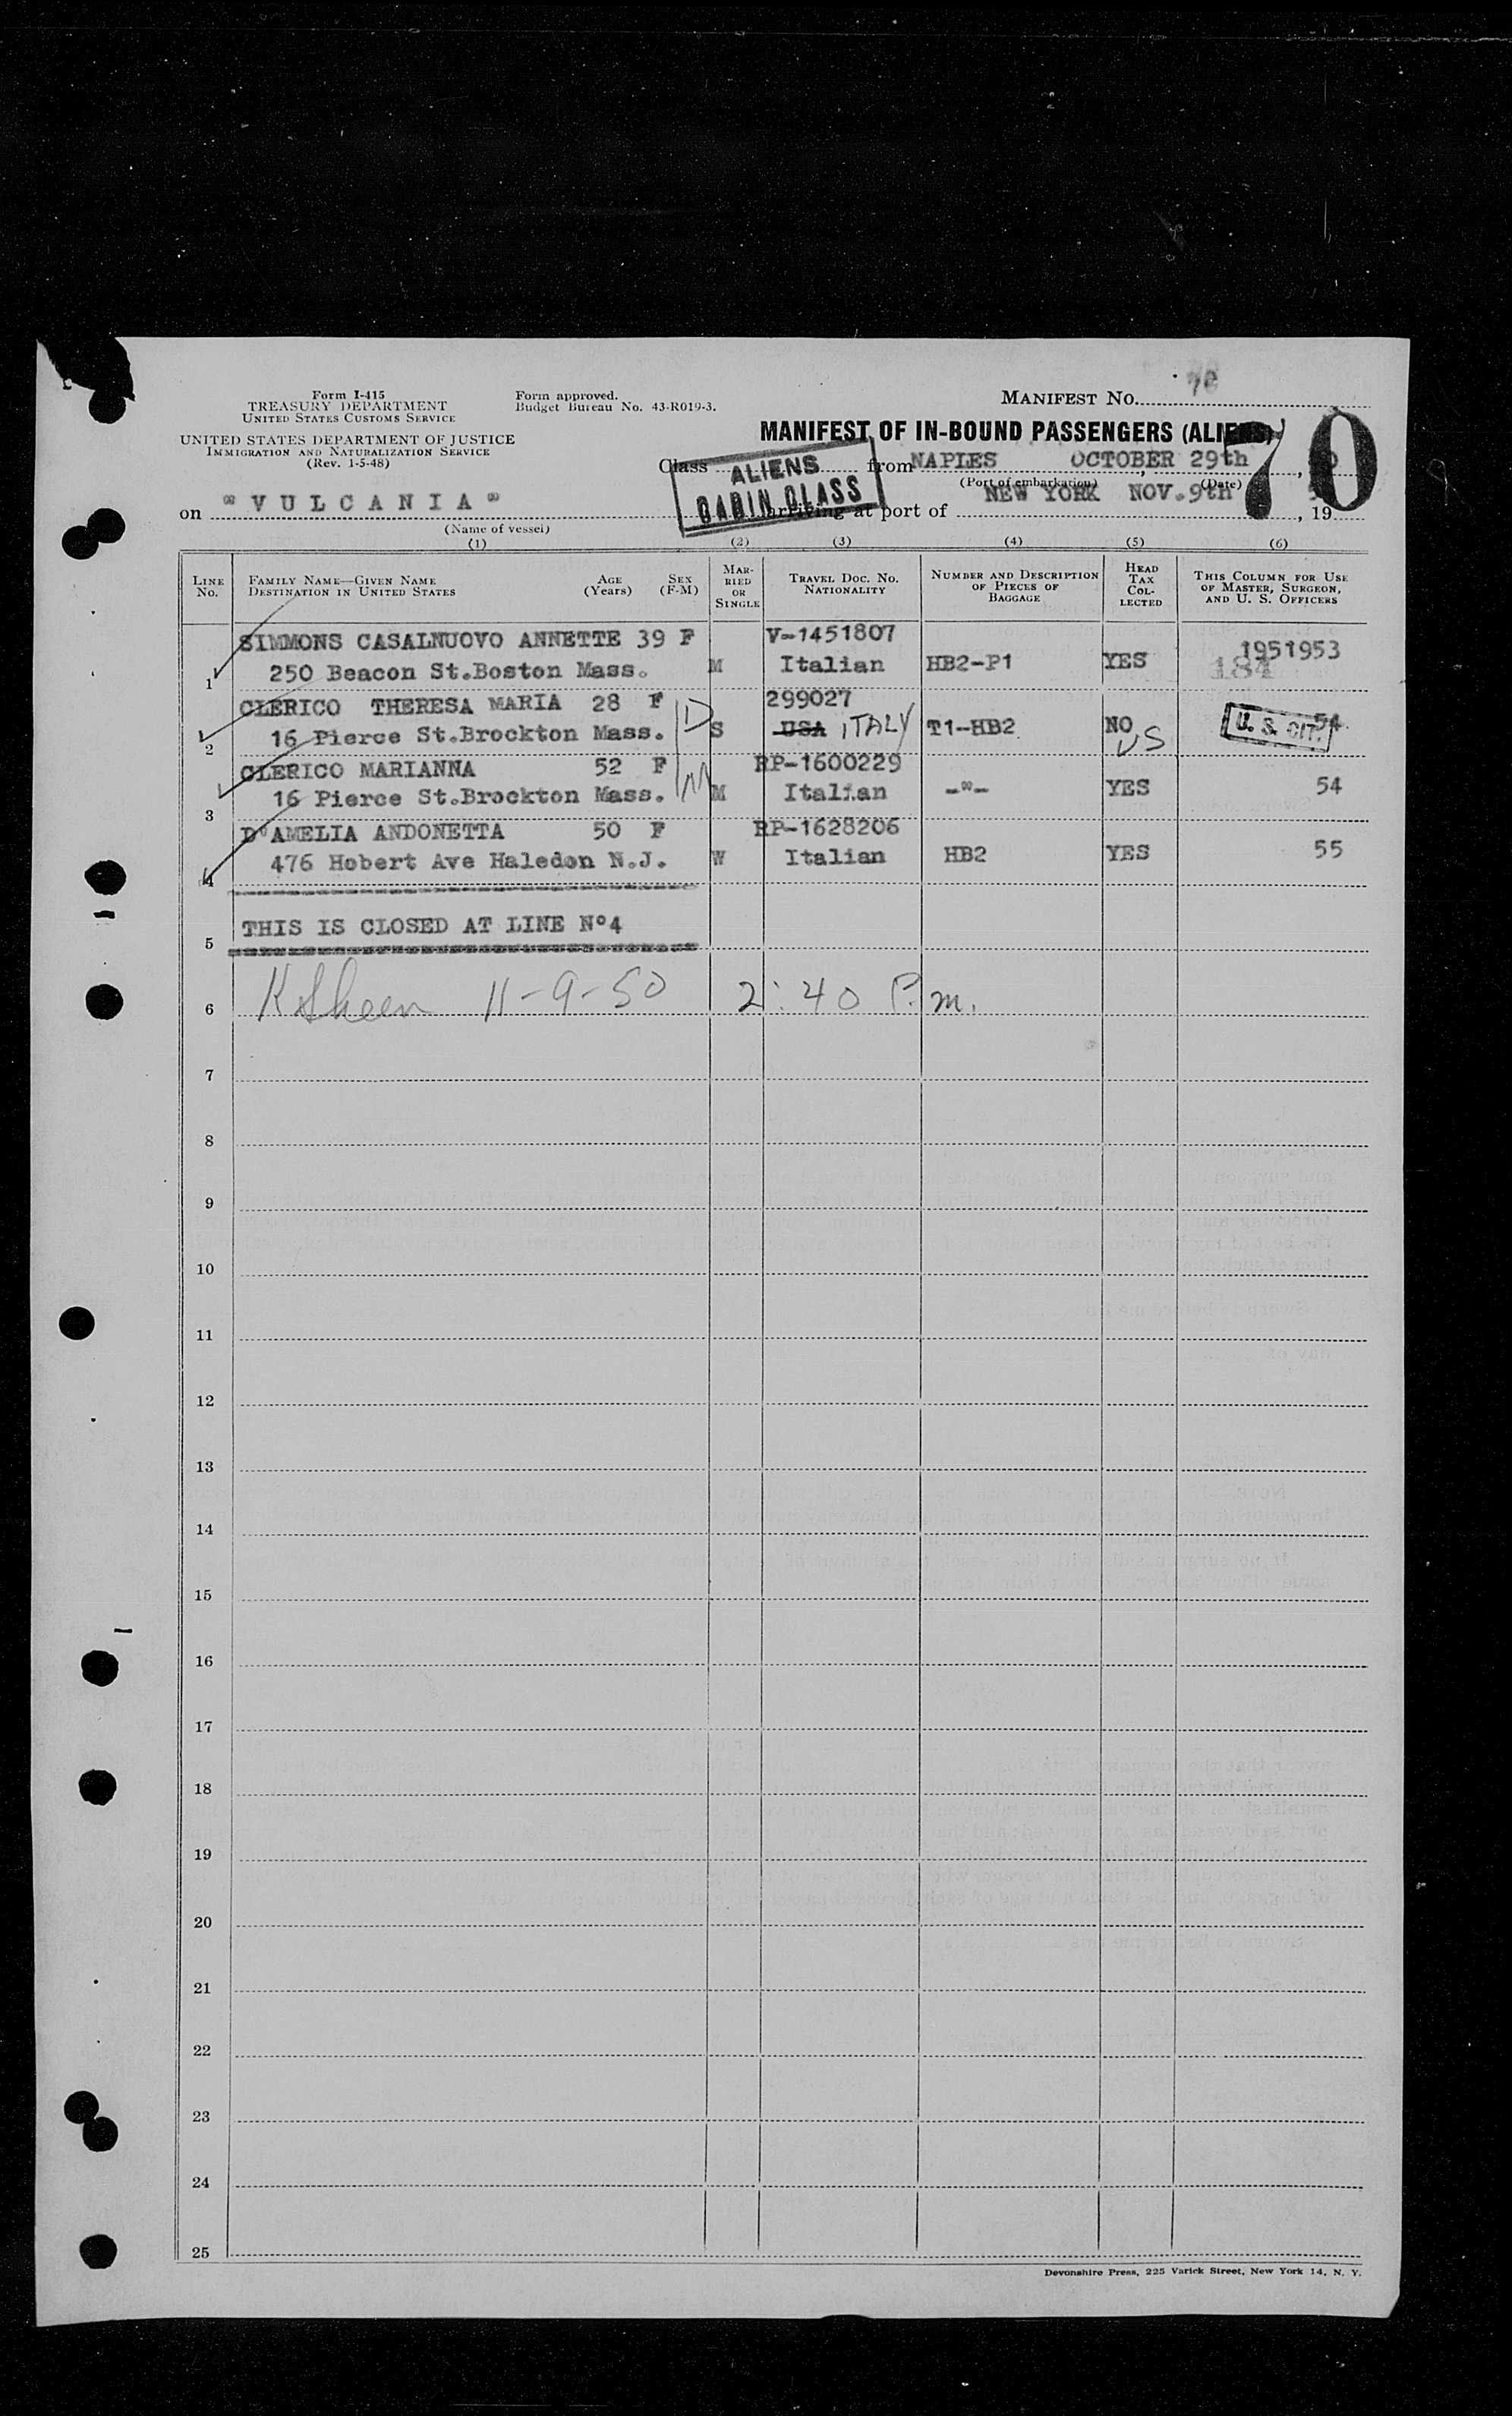 Form I-415
TREASURY DEPARTMENT
UNITED STATES CUSTOMS SERVICE
UNITED STATES DEPARTMENT OF JUSTICE
IMMIGRATION AND NATURALIZATION SERVICE
(Rev. 1-5-48)
Form approved.
Budget Bureau No. 43-R019-3.
MANIFEST No. 70
MANIFEST OF IN-BOUND PASSENGERS (ALIENS)
70
Class ALIENS CABIN CLASS from NAPLES OCTOBER 29th,
(Port of embarkation) (Date)
on "VULCANIA" arriving at port of NEW YORK NOV. 9th, 19
(Name of vessel)
(1) (2) (3) (4) (5) (6)
LINE No. FAMILY NAME—GIVEN NAME DESTINATION IN UNITED STATES AGE (Years) SEX (F-M) MARRIED OR SINGLE TRAVEL DOC. No. NATIONALITY NUMBER AND DESCRIPTION OF PIECES OF BAGGAGE HEAD TAX COLLECTED THIS COLUMN FOR USE OF MASTER, SURGEON, AND U. S. OFFICERS
SIMMONS CASALNUOVO ANNETTE 39 F V-1451807 1951953
1 250 Beacon St.Boston Mass. M Italian HB2-P1 YES 184
CLERICO THERESA MARIA 28 F D 299027
2 16 Pierce St.Brockton Mass. S USA ITALY T1-HB2 NO US U. S. CIT. 54
CLERICO MARIANNA 52 F M RP-1600229
3 16 Pierce St.Brockton Mass. M Italian -"- YES 54
D'AMELIA ANDONETTA 50 F RP-1628206
4 476 Hobert Ave Haledon N.J. W Italian HB2 YES 55
THIS IS CLOSED AT LINE N°4
5
6 K Sheen 11-9-50 2:40 P.m.
7
8
9
10
11
12
13
14
15
16
17
18
19
20
21
22
23
24
25
Devonshire Press, 225 Varick Street, New York 14, N. Y.